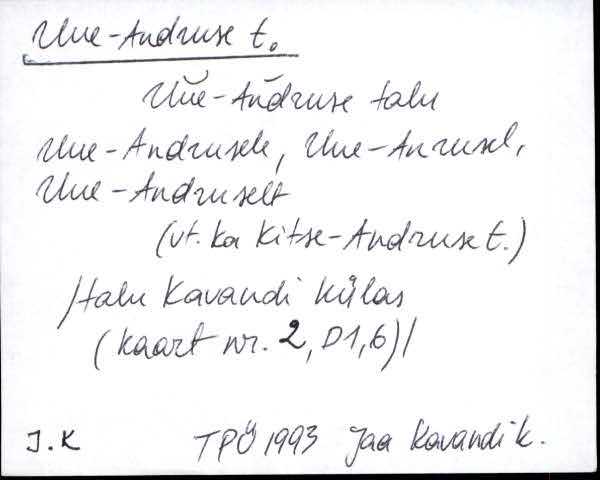 Uue-Andruse t.
Ŭŭe-Ăndruse talu
Uue-Andrusele, Uue-Anrusel,
Uue-Andruselt
(vt. ka Kitse-Andruse t.)
/talu Kavandi külas
(kaart nr. 2, D1,6)/
J.K TPÜ 1993 Jaa Kavandi k.